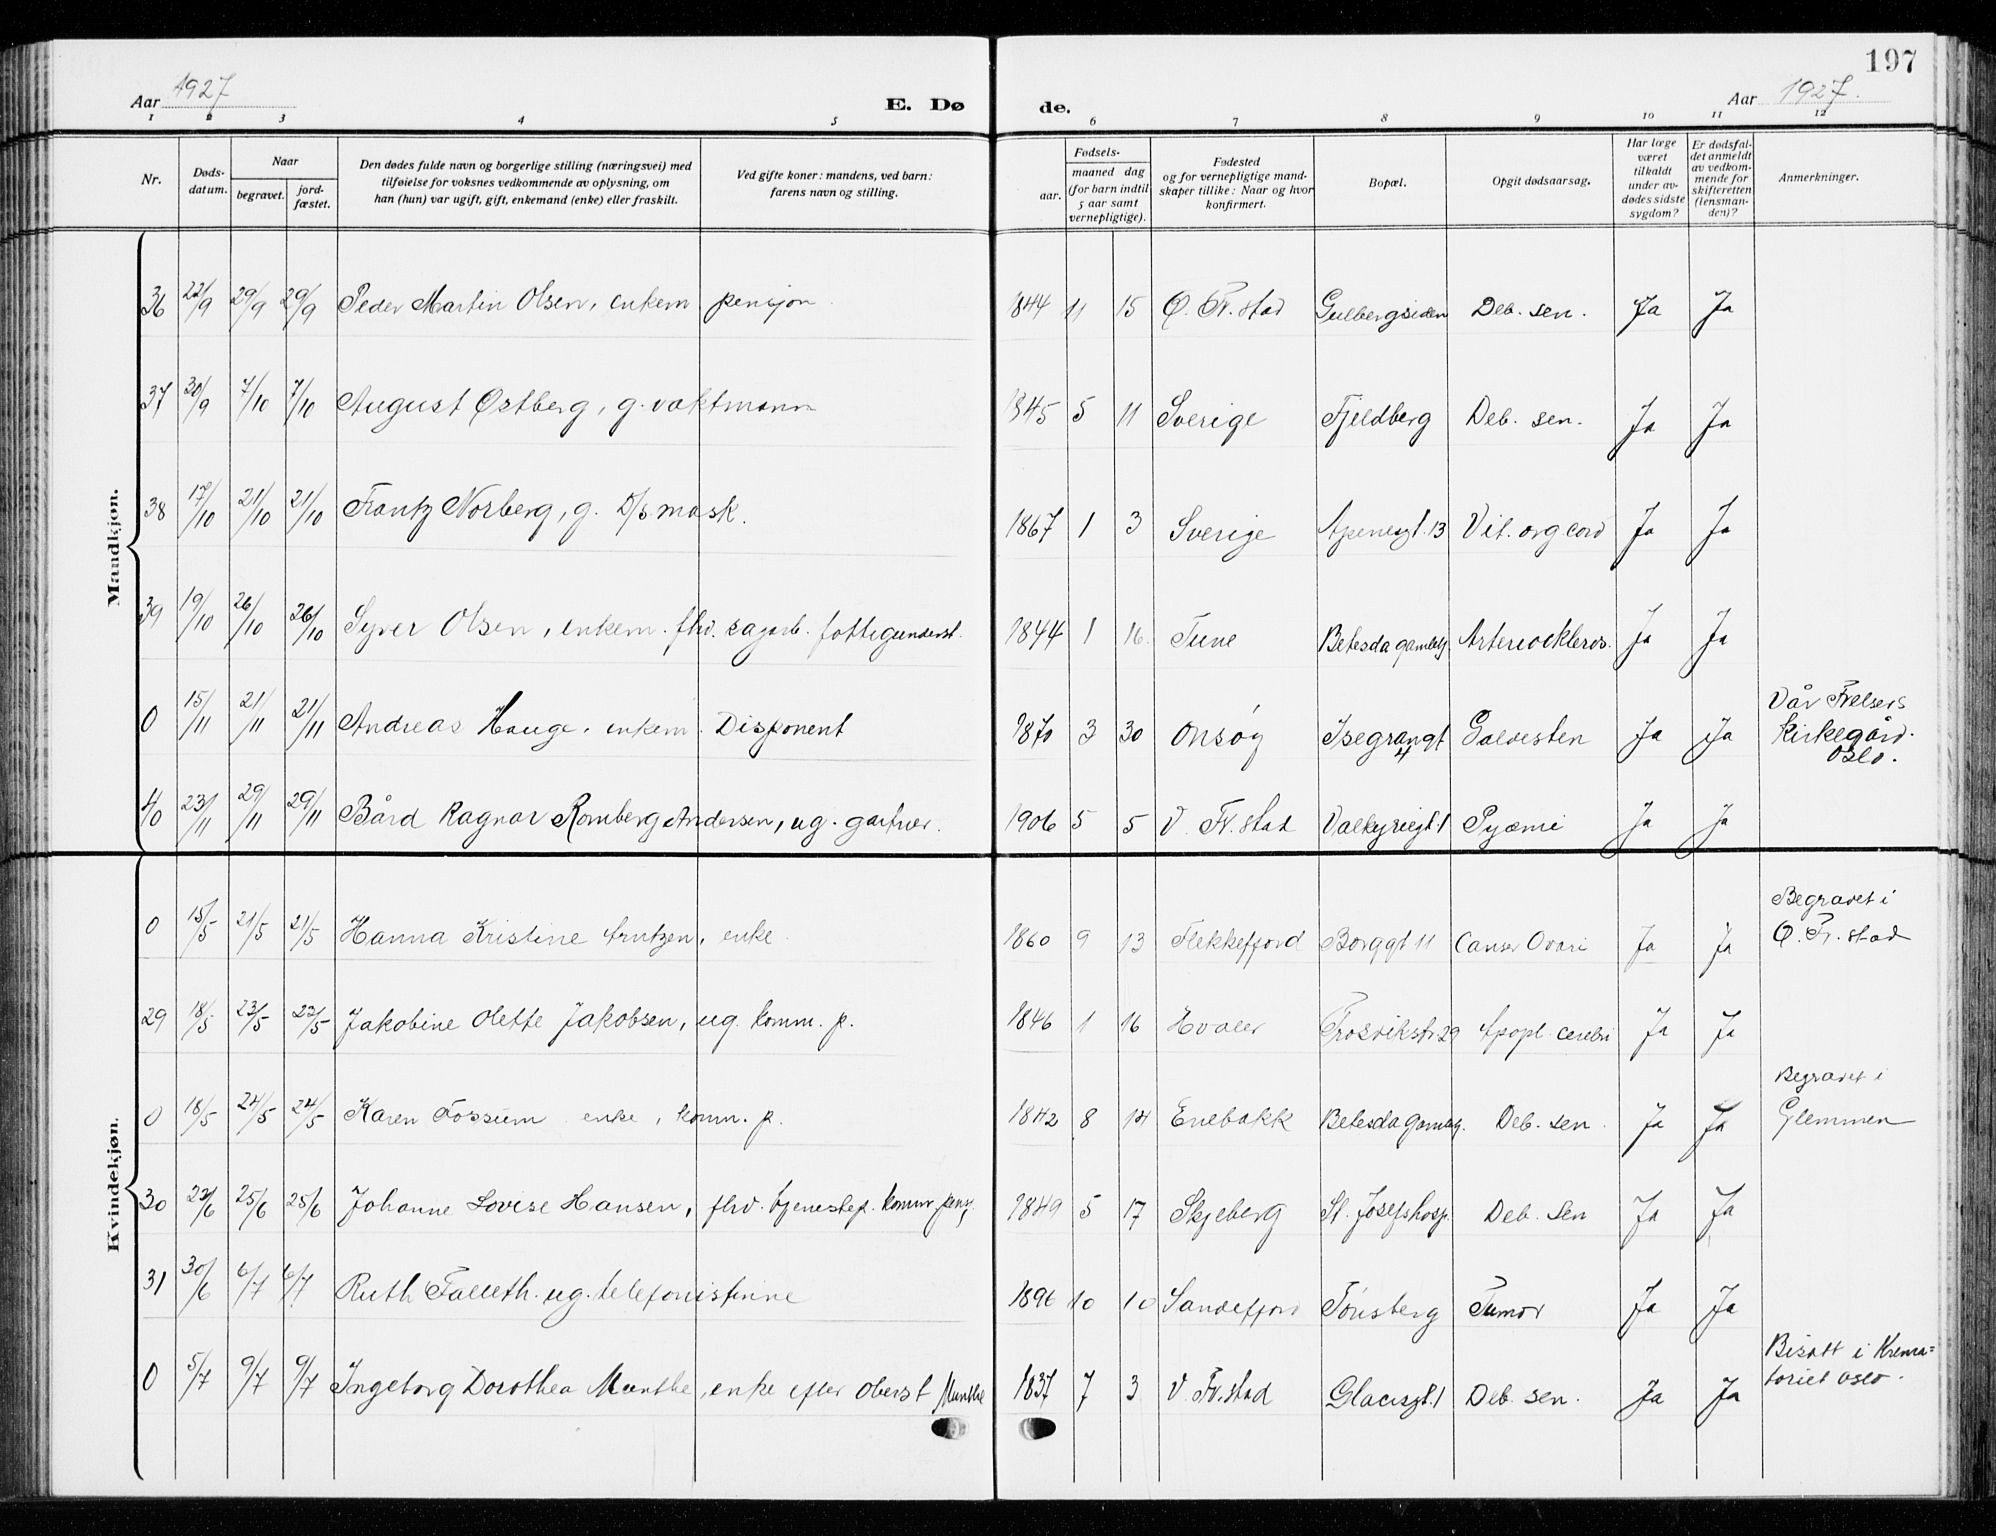 197
Aar 1927 E. Dø de. Aar 1927.
1 2 3 4 5 6 7 8 9 10 11 12
Nr. Døds-datum. Naar begravet. jord-fæstet. Den dødes fulde navn og borgerlige stilling (næringsvei) med tilføielse for voksnes vedkommende av oplysning, om han (hun) var ugift, gift, enkemand (enke) eller fraskilt. Ved gifte koner: mandens, ved barn: farens navn og stilling. Fødsels- aar. maaned dag (for barn indtil 5 aar samt vernepligtige). Fødested og for vernepligtige mand-skaper tillike: Naar og hvor konfirmert. Bopæl. Opgit dødsaarsag. Har læge været tilkaldt under av-dødes sidste sygdom? Er dødsfal-det anmeldt av vedkom-mende for skifteretten (lensman-den)? Anmerkninger.
Mandkjøn.
36 22/9 29/9 29/9 Peder Martin Olsen, enkem pensjon. 1844 11 15 Ø. Fr.stad Gulbergsiden Deb. sen. Ja Ja
37 30/9 7/10 7/10 August Østberg, g. vaktmann 1845 5 11 Sverige Fjeldberg Deb. sen. Ja Ja
38 17/10 21/10 21/10 Frantz Norberg, g. D/s mask. 1867 1 3 Sverige Apenesgt. 13 Vit. org. cord Ja Ja
39 19/10 26/10 26/10 Syver Olsen, enkem. fhv. sagarb. fattigunderst. 1844 1 16. Tune Betesda gamleh. Ja Ja
0 15/11 21/11 21/11 Andreas Hauge, enkem. Disponent 1870 3 30 Onsøy Isegrangt 4 Galdesten Ja Ja Vår Frelsers Kirkegård. Oslo.
40 23/11 29/11 29/11 Bård Ragnar Romberg Andersen, ug. gartner. 1906 5 5 V. Fr.stad Valkyriegt 1 Pyæmi Ja Ja
Kvindekjøn.
0 15/5 21/5 21/5 Hanna Kristine Arntzen, enke. 1860 9 13 Flekkefjord Borggt 11 Canser Ovari Ja Ja Begravet i Ø. Fr.stad
29 18/5 23/5 23/5 Jakobine Olette Jakobsen, ug. komm. p. 1846 1 16 Hvaler Trosvikstr. 29 Apopl. cerebri Ja Ja
0 18/5 24/5 24/5 Karen Fossum enke, komm. p. 1842 8 14 Enebakk Betesda gamleh. Deb. sen. Ja Ja Begravet i Glemmen
30 22/6 25/6 25/6 Johanne Lovise Hansen, fhv. tjenestep. komm. pensj. 1849 5 17 Skjeberg St. Josefshosp. Deb. Sen Ja Ja
31 30/6 6/7 6/7 Ruth Falleth. ug. telefonistinne 1896 10 10 Sandefjord Tønsberg Tumor Ja Ja
0 5/7 9/7 9/7 Ingeborg Dorothea Munthe, enke efter oberst Munthe 1837 7 3 V. Fr.stad Glacisgt. 1 Deb. sen. Ja Ja Bisatt i Krema=
toriet Oslo.